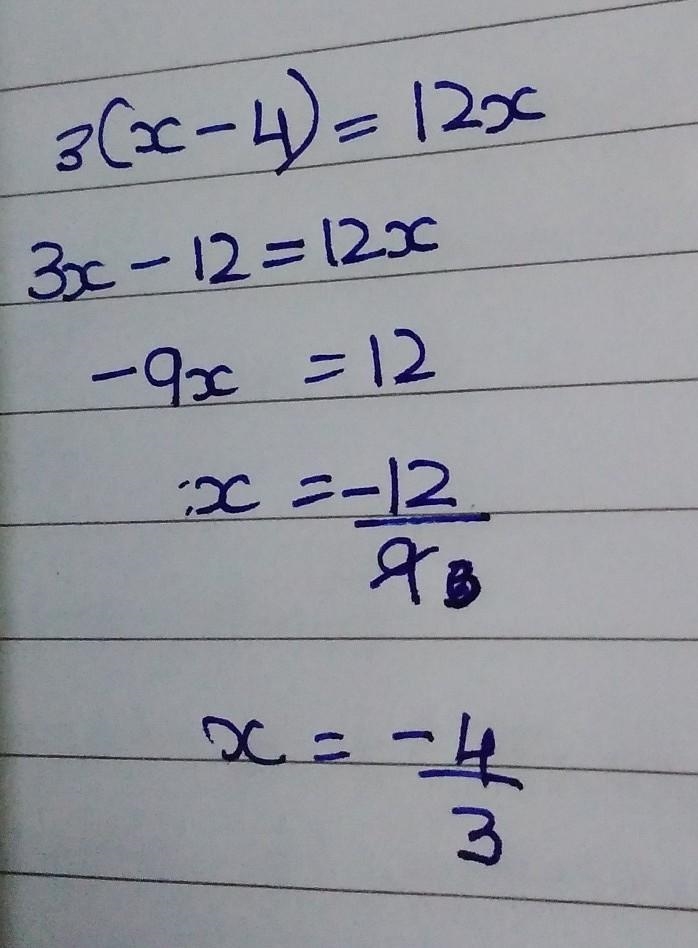 3(x - 4) = 12x
3x - 12 = 12x
-9x = 12
x = -12/9 3
x = -4/3